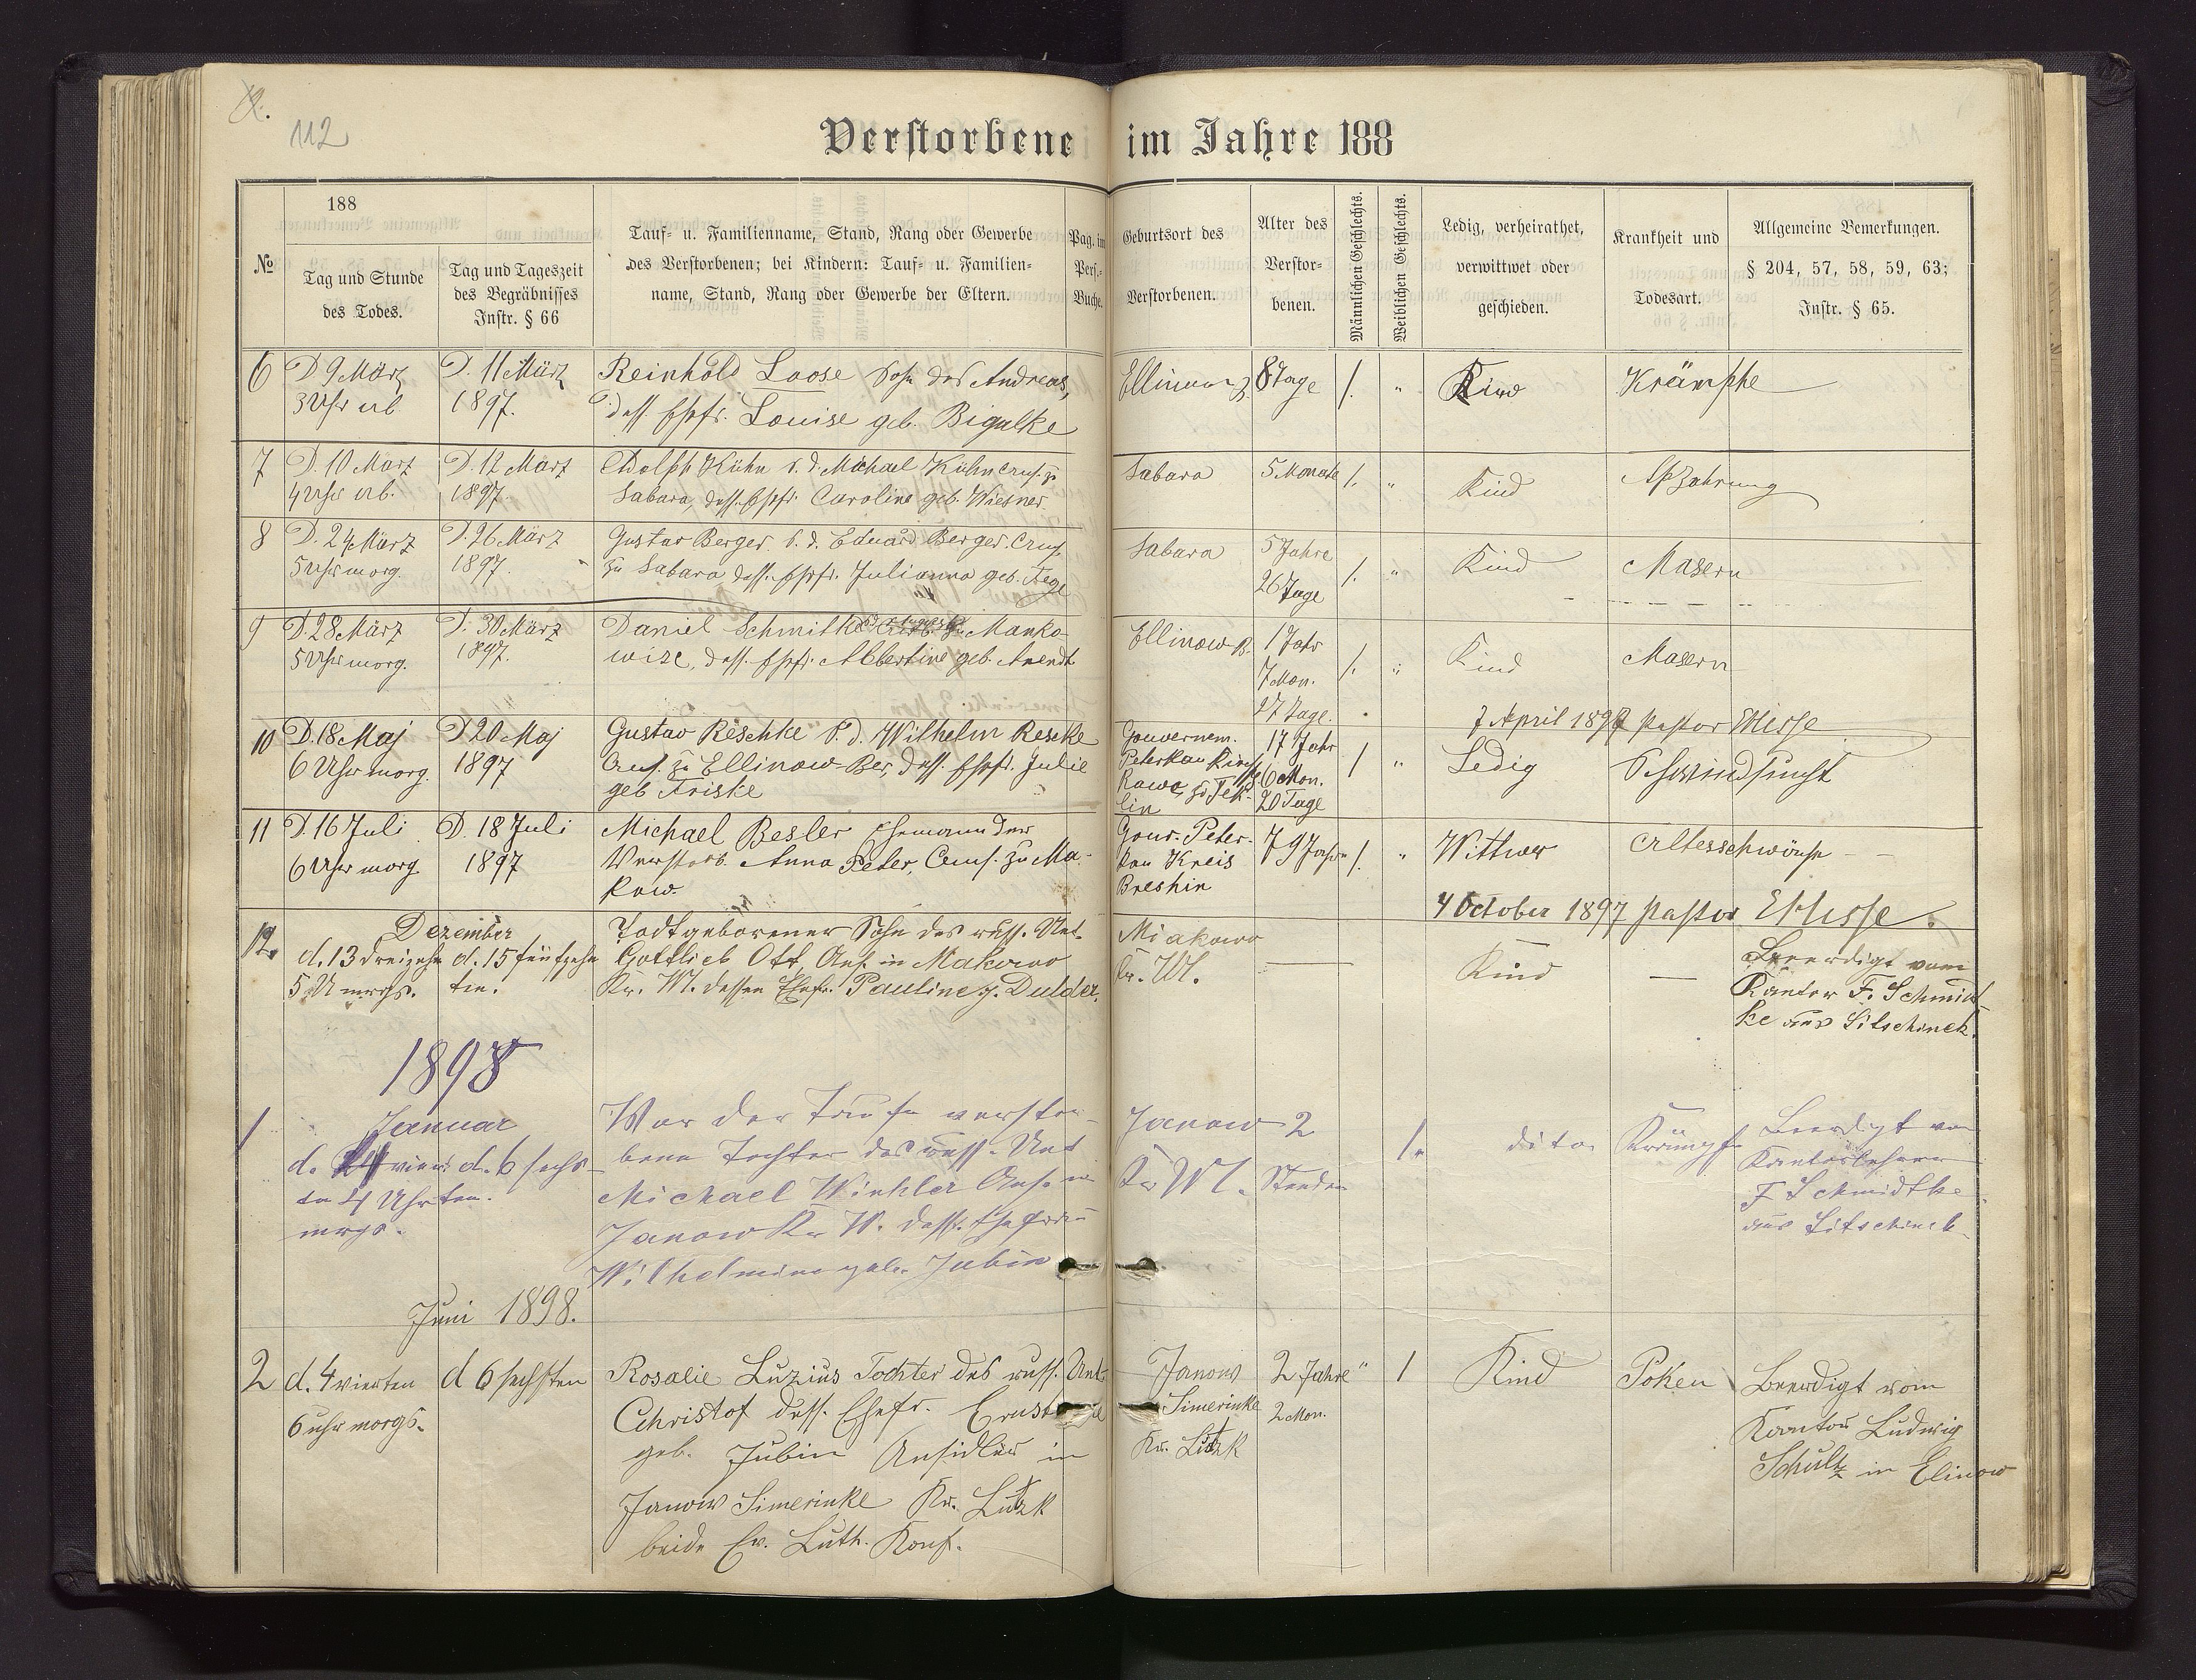 112
Verstorbene im Jahre 188
№
188
Tag und Stunde
des Todes.
Tag und Tageszeit
des Begräbnisses
Instr. § 66
Tauf- u. Familienname, Stand, Rang oder Gewerbe
des Verstorbenen; bei Kindern: Tauf- u. Familien-
name, Stand, Rang oder Gewerbe der Eltern.
Pag. im
Pers.-
Buche.
Geburtsort des
Verstorbenen.
Alter des
Verstor-
benen.
Männlichen Geschlechts.
Weiblichen Geschlechts.
Ledig, verheirathet,
verwittwet oder
geschieden.
Krankheit und
Todesart.
Allgemeine Bemerkungen.
§ 204, 57, 58, 59, 63;
Instr. § 65.
6
D 9 März
3 Uhr ab
D. 11 März
1897.
Reinhold Loose Sohn des Andreas,
dess. Ehfr. Louise geb. Bigalke
8 Tage
1.
"
Kind
Krämpfe
7
D. 10 März
4 Uhr ab.
D. 12 März
1897.
Adolph Kühn S. d. Michael Kühn Ans. zu
Sabara, dess. Ehfr. Caroline geb. Wiesner.
Sabara
5 Monate
1.
"
Kind
Abzahrung
8
D. 24 März
5 Uhr morg.
D. 26 März
1897.
Gustav Berger S. d. Eduard Berger Ans.
zu Sabara dess. Ehfr. Julianna geb. Fege
Sabara
5 Jahre
26 Tage
1.
"
Kind
Masern
9
D. 28 März
5 Uhr morg.
D. 30 März
1897.
Daniel Schmitke zu Manko-
wize, dess. Ehfr. Albertine geb. Arendt
Ellinow B.
1 Jahr
7 Mon.
27 Tage.
1.
"
Kind
Masern
7 April 1897 Pastor
10
D. 18 Maj
6 Uhr morg.
D 20 Maj
1897
Gustav Reschke S. d. Wilhelm Reschke
Ans. zu Ellinow-Ber, dess. Ehfr. Julie
geb Friske
Gouvernem.
Peterkau
Rawa zu Tek-
lin
17 Jahr
6 Mon.
20 Tage
1
"
Ledig
Schwindsucht
11
D. 16 Juli
6 Uhr morg.
D. 18 Juli
1897
Michael Besler Ehemann der
Verstorb. Anna Peter, Ans. zu Ma-
kow.
Gouv. Peter-
kau Kreis
Breshin
79 Jahre
1.
"
Wittwer
Altesschwäche
4 October 1897 Pastor
12.
Dezember
d. 13 dreizehn
5 U mrgs.
d. 15 fünfzehn
ten.
Todtgeborener Sohn des russ. Unt.
Gottlieb Ott, Ans. in Makowo
Kr. Wl. dessen Ehefr. Pauline g. Dulder.
Kr. Wl.
Kind
Beerdigt vom
Kantor F. Schmidt-
ke aus Litschinek.
1898
1
Januar
d. vier
ten 4 Uhr
mrgs.
d. 6 sechs-
ten.
Vor der Taufe verstor-
bene Tochter des russ. Unt
Michael Winkler Ans. in
Janow Kr W. dess. Ehefrau
Wilhelmine geb. Jubin
Janow
Kr Wl.
2
Stunden
1.
dito.
Krämpfe
Beerdigt von
Kantorlehrer
F Schmidtke
aus Litschinek.
Juni 1898.
2
d. 4 vierten
6 uhr morgs.
d 6 sechsten
Rosalie Luzius Tochter des russ. Unt.
Christof dess. Ehefr.
geb. Jubin Ansidler in
Janow Simerinke Kr. Lutzk
beide Ev. Luth. Konf.
Janow
Simerinke
Kr. Lutzk
2 Jahre
2 Mon.
"
1
Kind
Poken
Beerdigt vom
Kantor Ludwig
Schultz in Elinow